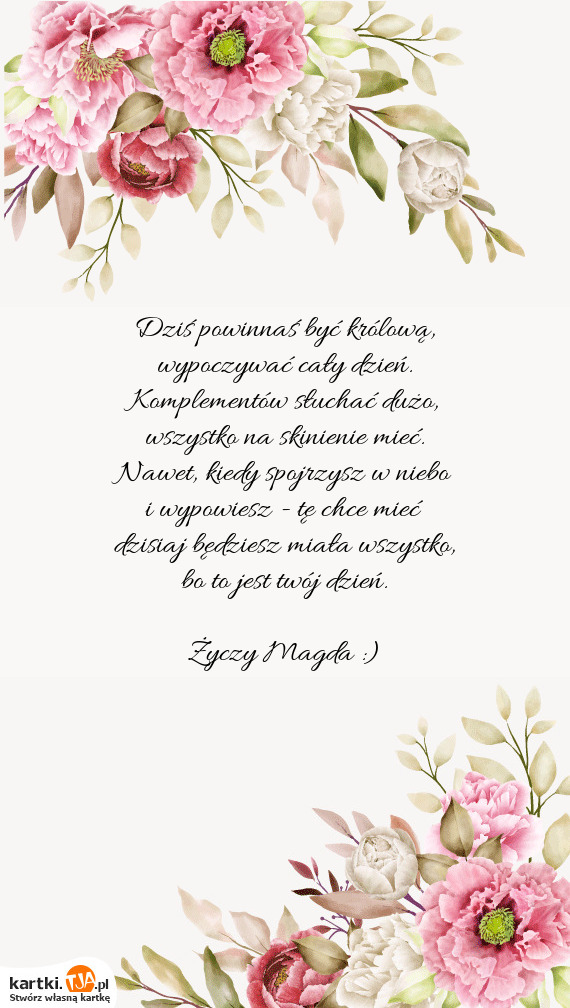 Dziś powinnaś być królową,
wypoczywać cały dzień.
Komplementów słuchać dużo,
wszystko na skinienie mieć.
Nawet, kiedy spojrzysz w niebo
i wypowiesz - tę chce mieć
dzisiaj będziesz miała wszystko,
bo to jest twój dzień.

Życzy Magda :)

kartki.TJA.pl
Stwórz własną kartkę